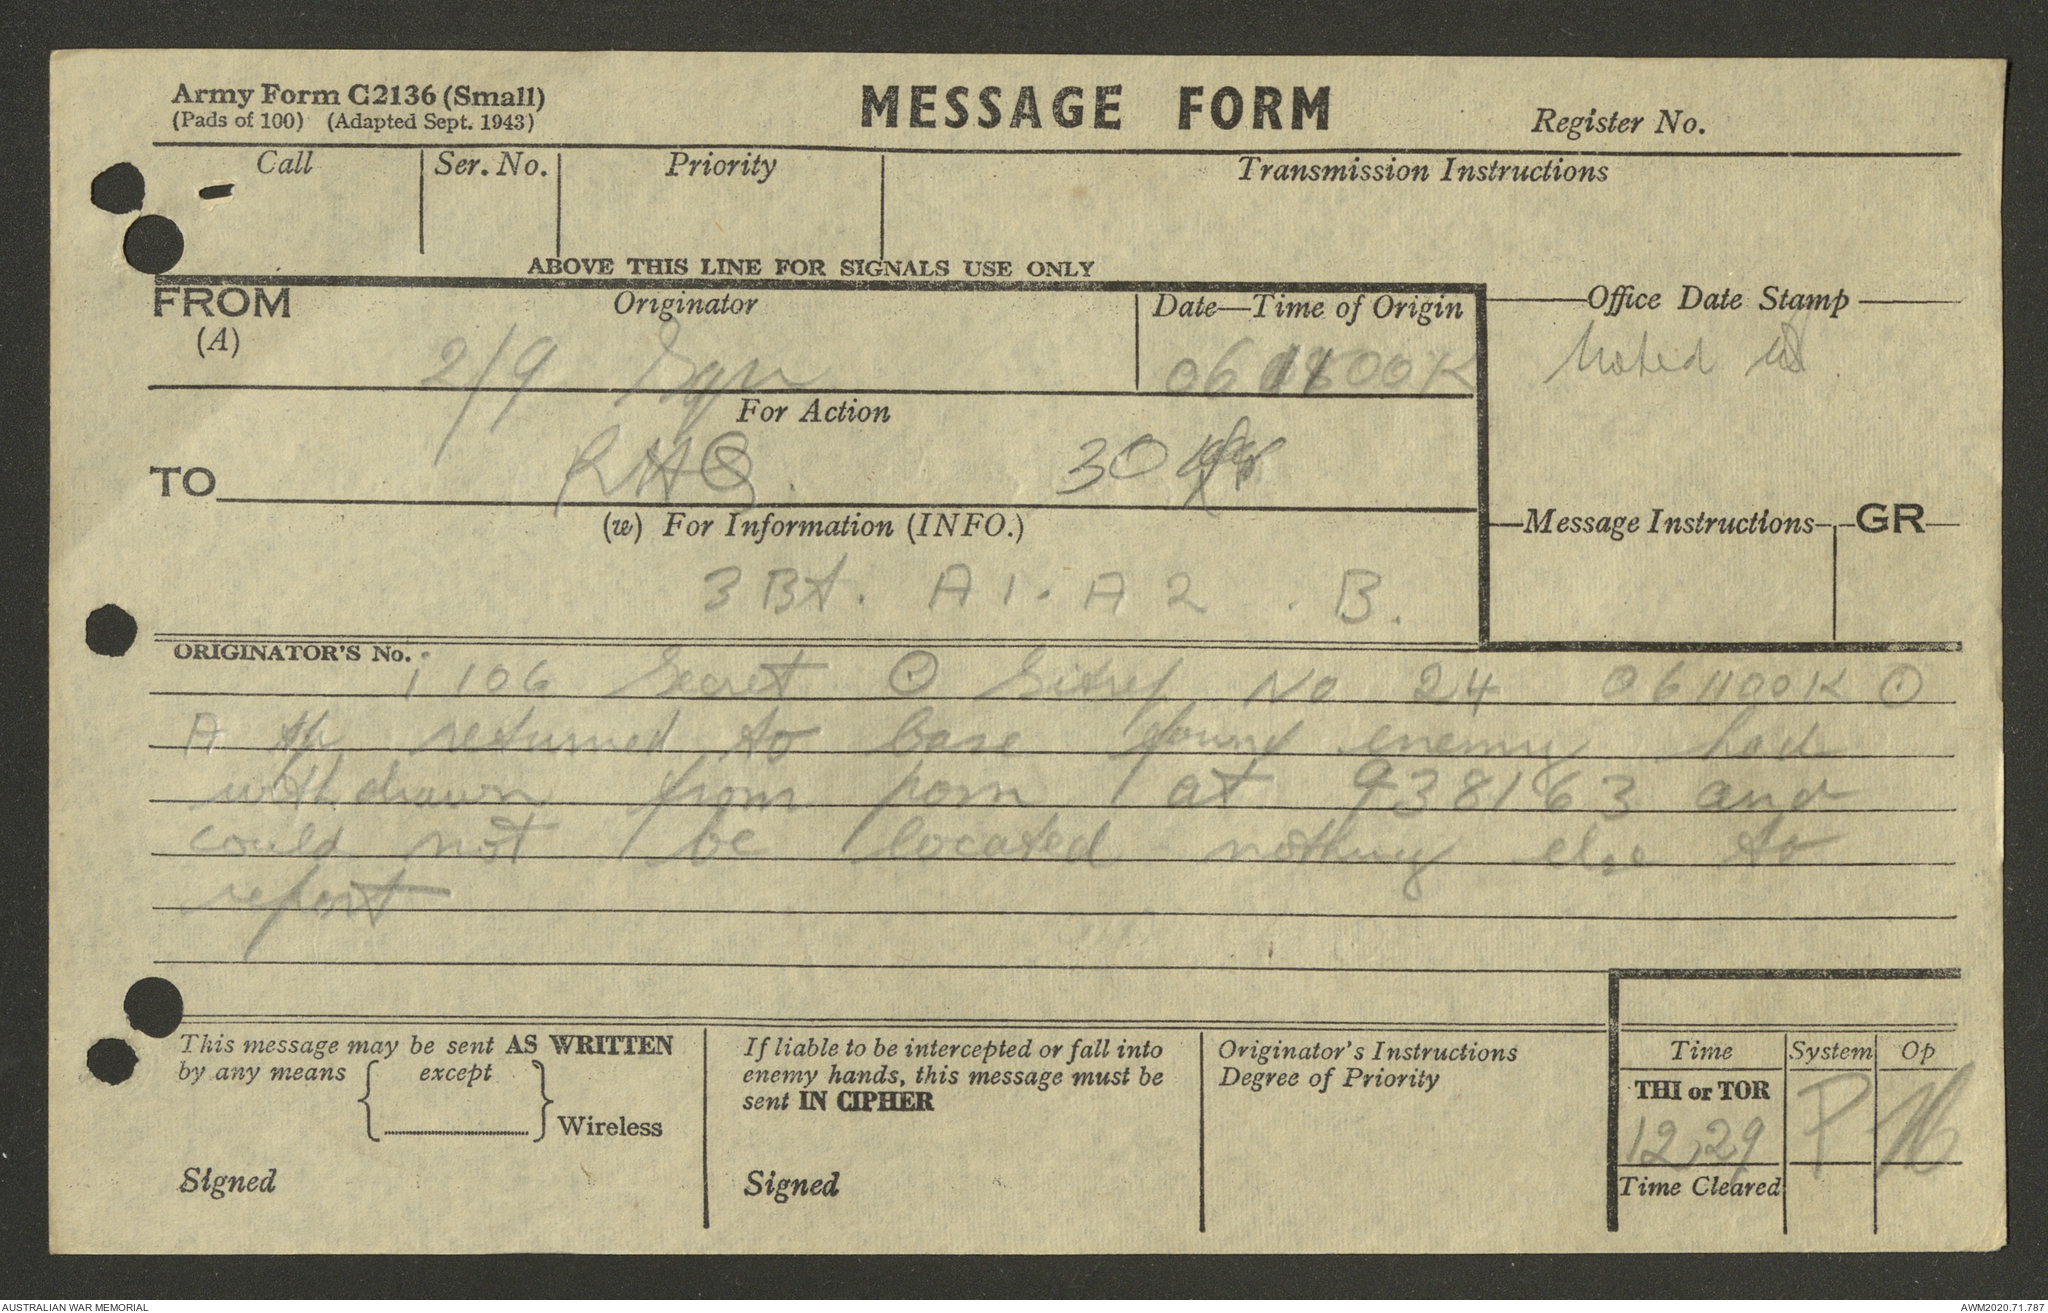 Army Form C2136 (Small)
(Pads of 100) (Adapted Sept. 1943)
MESSAGE FORM
Register No.
Call
Ser. No.
Priority
Transmission Instructions
ABOVE THIS LINE FOR SIGNALS USE ONLY
FROM
(A)
Originator
2/9 Sqn
Date—Time of Origin
00K
Office Date Stamp
Noted
For Action
TO
RHQ. 30
(w) For Information (INFO.)
3 Bt. A1. A2. B.
Message Instructions
GR
ORIGINATOR'S No.
106 Secret ⊙ Sitrep No 24 061100K ⊙
A tp returned to base found enemy had
withdrawn from posn at 938163 and
could not be located nothing else to
report
This message may be sent AS WRITTEN
by any means except
Wireless
Signed
If liable to be intercepted or fall into
enemy hands, this message must be
sent IN CIPHER
Signed
Originator's Instructions
Degree of Priority
Time
System
Op
THI or TOR
12,29
P
Time Cleared
AUSTRALIAN WAR MEMORIAL
AWM2020.71.787